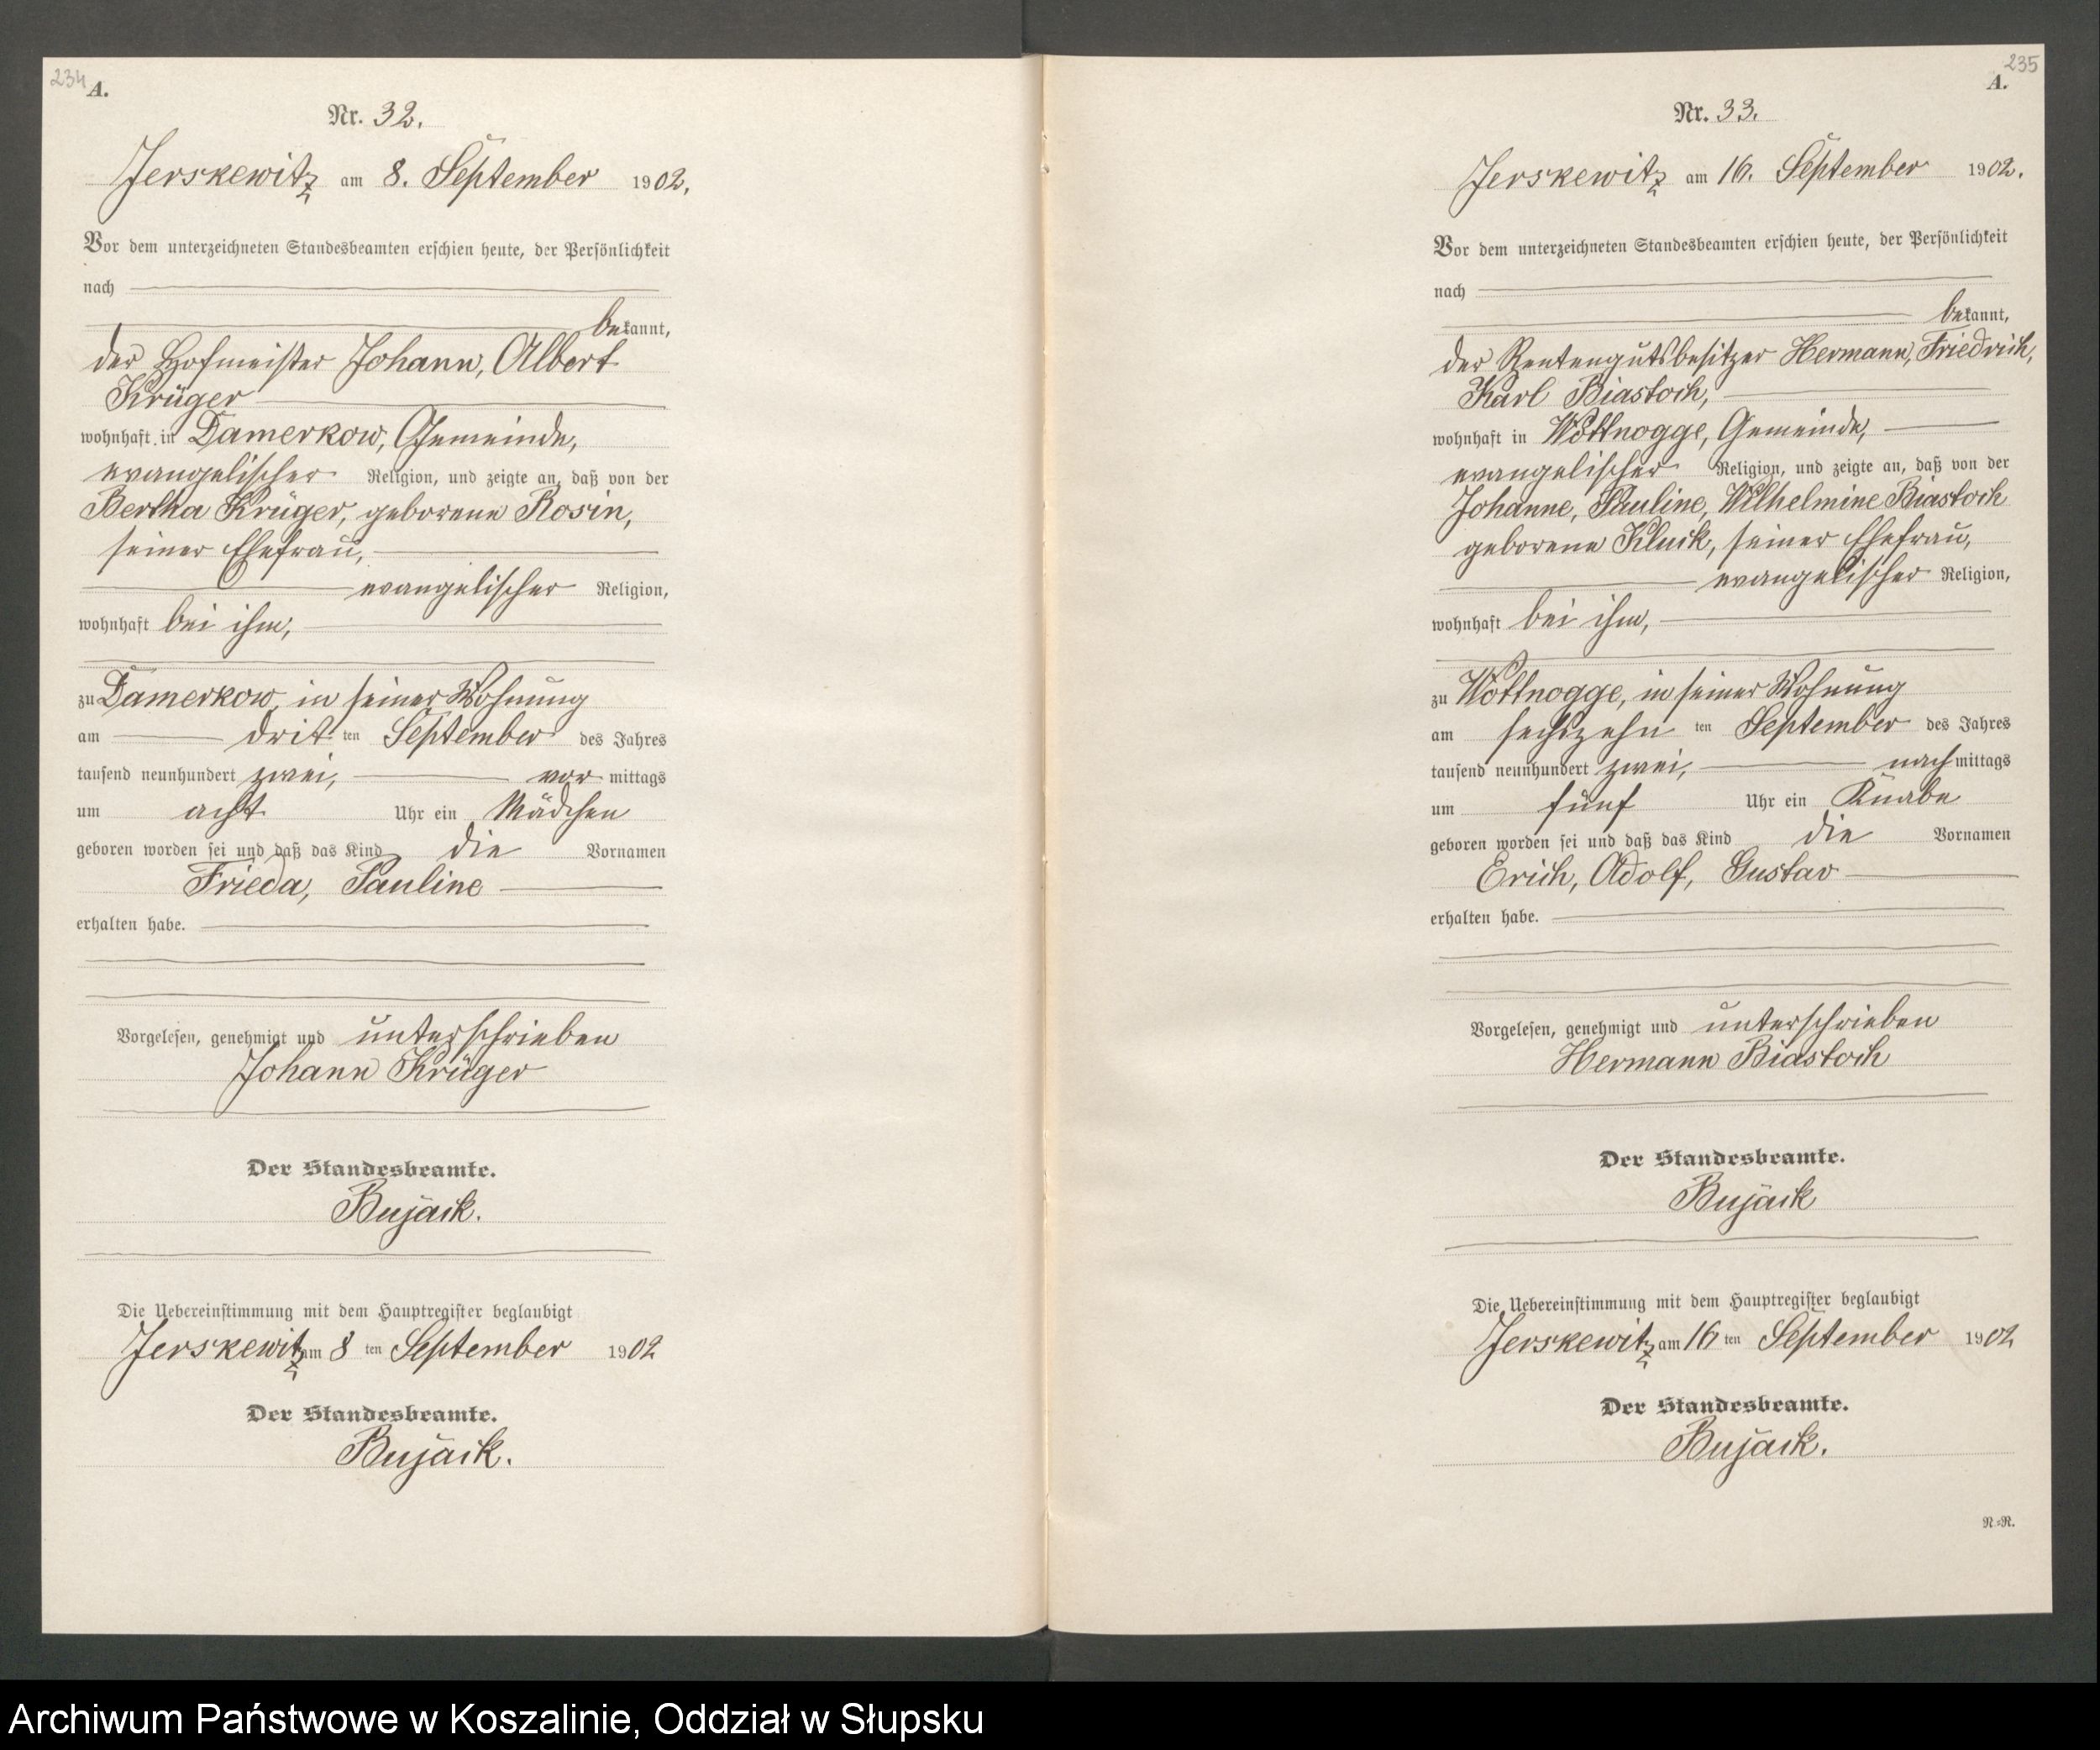 234
A.
Nr. 32.
Jerskewitz am 8. September 1902,
Vor dem unterzeichneten Standesbeamten erschien heute, der Persönlichkeit
nach
bekannt,
der Hofmeister Johann, Albert
Krüger
wohnhaft in Damerkow, Gemeinde,
evangelischer Religion, und zeigte an, daß von der
Bertha Krüger, geborene Rosin,
seiner Ehefrau,
evangelischer Religion,
wohnhaft bei ihm,
zu Damerkow, in seiner Wohnung
am drit ten September des Jahres
tausend neunhundert zwei, vor mittags
um acht Uhr ein Mädchen
geboren worden sei und daß das Kind die Vornamen
Frieda, Pauline
erhalten habe.
Vorgelesen, genehmigt und unterschrieben
Johann Krüger
Der Standesbeamte.
Bujack.
Die Uebereinstimmung mit dem Hauptregister beglaubigt
Jerskewitz am 8 ten September 1902
Der Standesbeamte.
Bujack.
235
A.
Nr. 33.
Jerskewitz am 16. September 1902.
Vor dem unterzeichneten Standesbeamten erschien heute, der Persönlichkeit
nach
bekannt,
der Rentengutsbesitzer Hermann, Friedrich,
Karl Biastoch,
wohnhaft in Wottnogge, Gemeinde,
evangelischer Religion, und zeigte an, daß von der
Johanne, Pauline, Wilhelmine Biastoch
geborene Kluck, seiner Ehefrau,
evangelischer Religion,
wohnhaft bei ihm,
zu Wottnogge, in seiner Wohnung
am sechszehn ten September des Jahres
tausend neunhundert zwei, nach mittags
um fünf Uhr ein Knabe
geboren worden sei und daß das Kind die Vornamen
Erich, Adolf, Gustav
erhalten habe.
Vorgelesen, genehmigt und unterschrieben
Hermann Biastoch
Der Standesbeamte.
Bujack
Die Uebereinstimmung mit dem Hauptregister beglaubigt
Jerskewitz am 16 ten September 1902
Der Standesbeamte.
Bujack.
N.=R.
Archiwum Państwowe w Koszalinie, Oddział w Słupsku